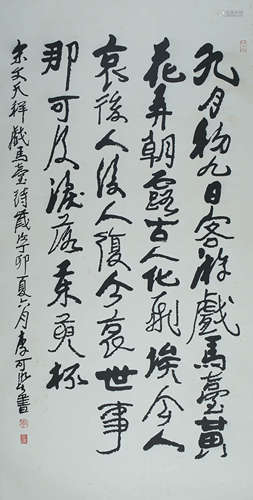 九月初九日客游戲馬臺黃
花弄朝露古人化飛埃今人
哀後人後人復今哀世事
那可及淚落茱萸杯
宋文天祥戲馬臺詩歲次丁卯夏六月康可書